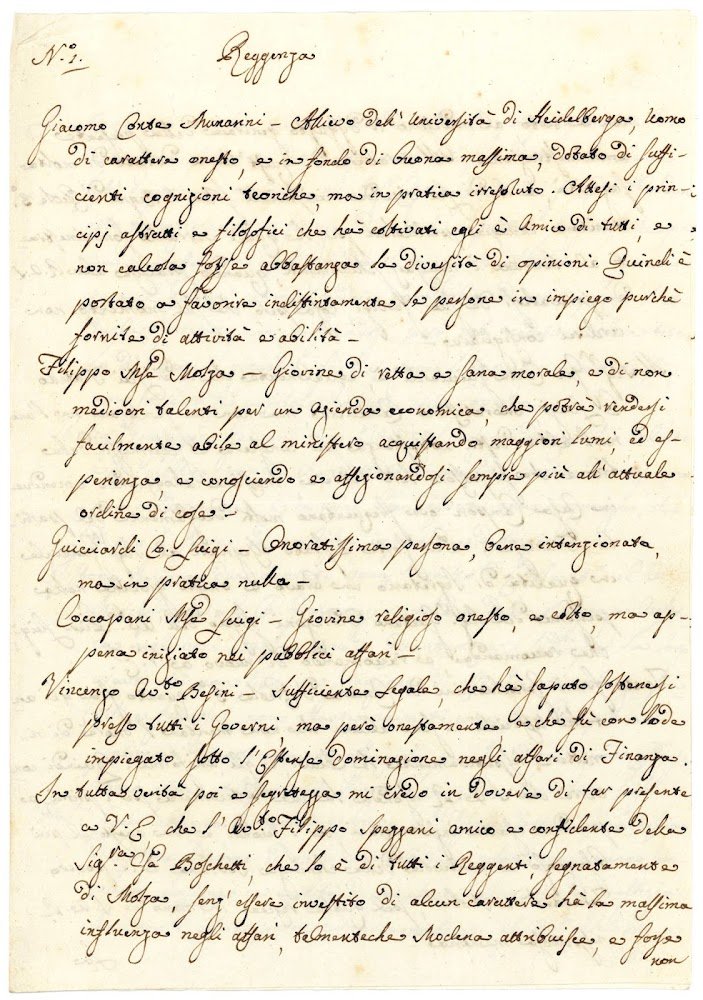 N.º 1. Reggenza
Giacomo Conte Munarini – Allievo dell' Università di Heidelberga, Uomo
di carattere onesto, e in fondo di buona massima, dotato di suffi-
cienti cognizioni teoriche, ma in pratica irresoluto. Attesi i prin-
cipj astratti e filosofici che hà coltivati egli è Amico di tutti, e
non calcola forse abbastanza la diversità di opinioni. Quindi è
portato a favorire indistintamente le persone in impiego purchè
fornite di attività e abilità –
Filippo Mse Molza – Giovine di retta e sana morale, e di non
mediocri talenti per un azienda economica, che potrà rendersi
facilmente abile al ministero acquistando maggiori lumi, ed es-
perienza, e conoscendo e affezionandosi sempre più all' attuale
ordine di cose –
Guicciardi Co. Luigi – Onoratissima persona, bene intenzionata,
ma in pratica nulla –
Coccapani Mse Luigi – Giovine religioso onesto, e colto, ma ap-
pena iniziato nei pubblici affari –
Vincenzo Avto Besini – Sufficiente Legale, che hà saputo sostenersi
presso tutti i Governi, ma però onestamente e che fù con lode
impiegato sotto l'Estense dominazione negli affari di Finanza.
In tutta verità poi e segretezza mi credo in dovere di far presente
a V. E che l' Avto Filippo Spezzani amico e confidente della
Sigra Csa Boschetti, che lo è di tutti i Reggenti, segnatamente
di Molza, senz' essere investito di alcun carattere hà la massima
influenza negli affari, talmenteche Modena attribuisce, e forse
non